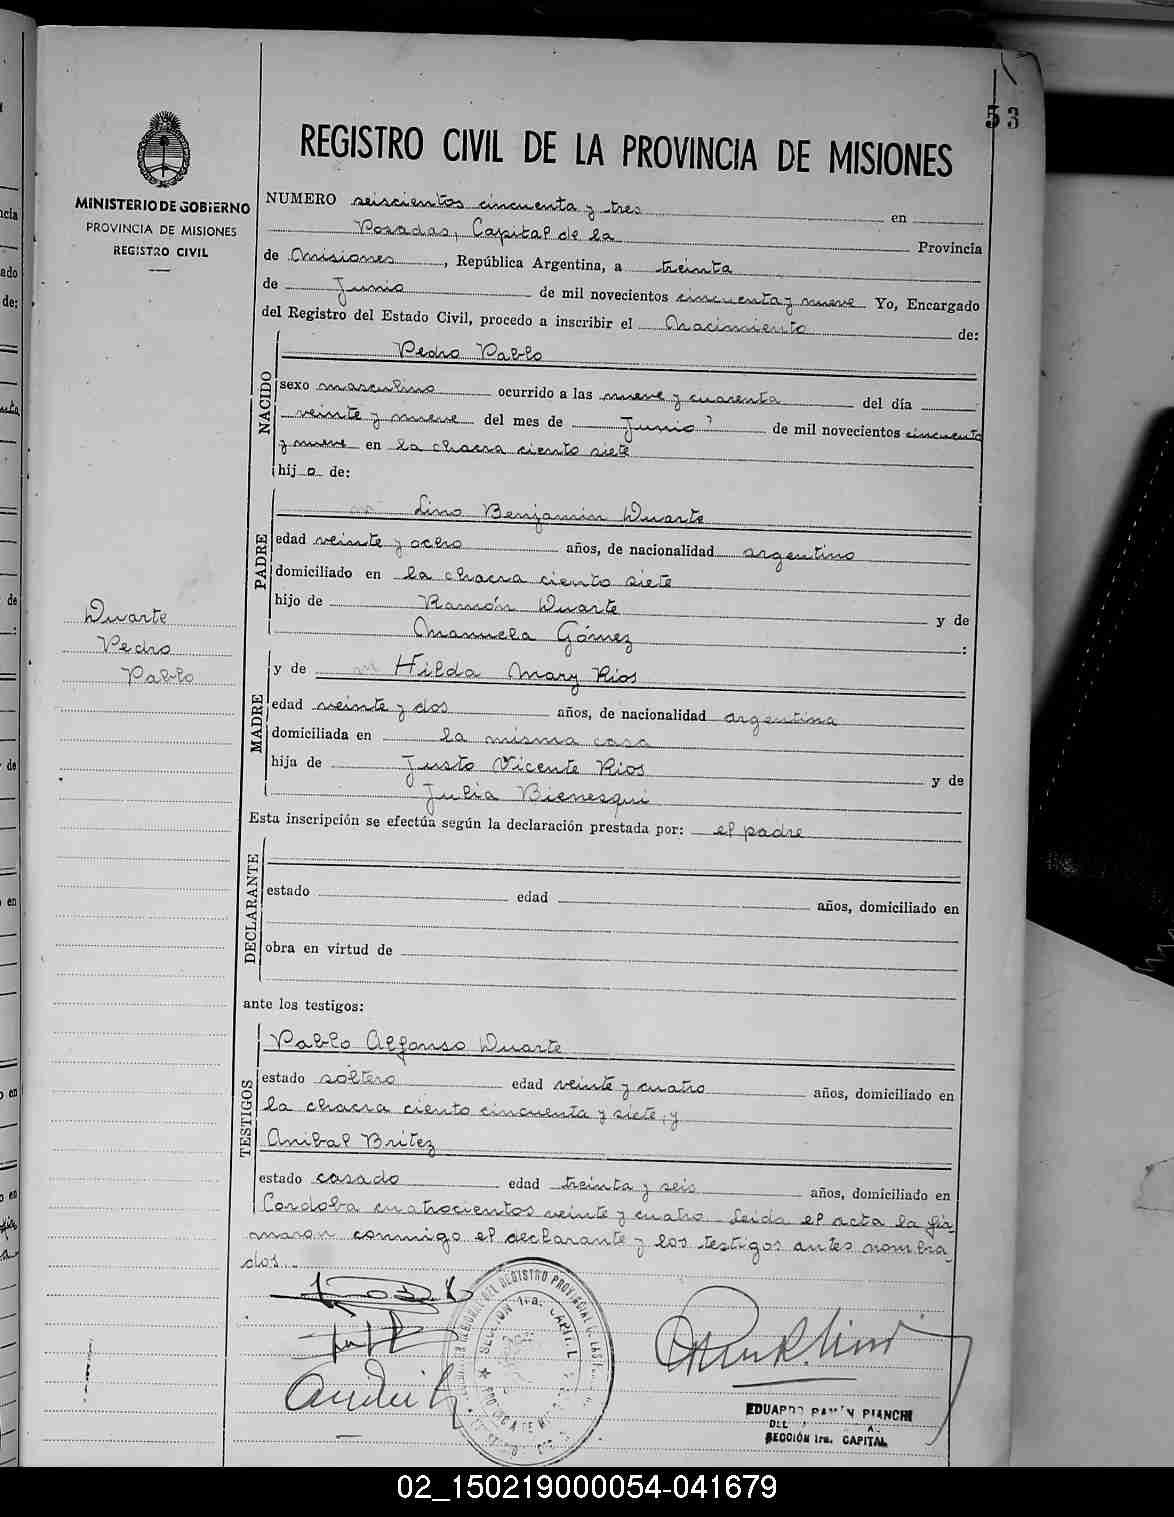 53
REGISTRO CIVIL DE LA PROVINCIA DE MISIONES
MINISTERIO DE GOBIERNO
PROVINCIA DE MISIONES
REGISTRO CIVIL
NUMERO seiscientos cincuenta y tres en
Posadas, Capital de la Provincia
de Misiones, República Argentina, a treinta
de Junio de mil novecientos cincuenta y nueve Yo, Encargado
del Registro del Estado Civil, procedo a inscribir el Nacimiento de:
NACIDO
Pedro Pablo
sexo masculino ocurrido a las nueve y cuarenta del día
veinte y nueve del mes de Junio de mil novecientos cincuenta
y nueve en la chacra ciento siete
hijo de:
PADRE
Lino Benjamin Duarte
edad veinte y ocho años, de nacionalidad argentino
domiciliado en la chacra ciento siete
hijo de Ramón Duarte y de
Manuela Gómez :
Duarte
Pedro
Pablo
MADRE
y de Hilda Mary Rios
edad veinte y dos años, de nacionalidad argentina
domiciliada en la misma casa
hija de Justo Vicente Rios y de
Julia Bienesqui
Esta inscripción se efectúa según la declaración prestada por: el padre
DECLARANTE
estado edad años, domiciliado en
obra en virtud de
ante los testigos:
TESTIGOS
Pablo Alfonso Duarte
estado soltero edad veinte y cuatro años, domiciliado en
la chacra ciento cincuenta y siete, y
Anibal Britez
estado casado edad treinta y seis años, domiciliado en
Cordoba cuatrocientos veinte y cuatro. Leida el acta la fir-
maron conmigo el declarante y los testigos antes nombra-
dos.
SECCION 1ra. CAPITAL
EDUARDO RAMÓN BIANCHI
SECCIÓN 1ra. CAPITAL
02_150219000054-041679